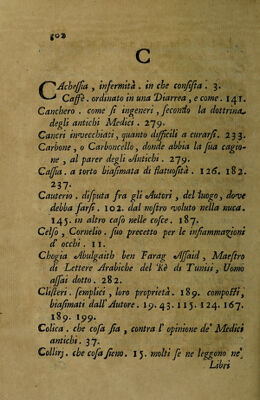 502
C
CAcheſſia, infermità. in che conſiſta. 3.
Caffè. ordinato in una Diarrea, e come. 141.
Canchero. come ſi ingeneri, ſecondo la dottrina
degli antichi Medici. 279.
Cancri invecchiati, quanto difficili a curarſi. 233.
Carbone, o Carboncello, donde abbia la ſua cagio-
ne, al parer degli Antichi. 279.
Caſſia. a torto biaſimata di flatuoſità. 126. 182.
237.
Cauterio. diſputa fra gli Autori, del luogo, dove
debba farſi. 102. dal noſtro voluto nella nuca.
145. in altro caſo nelle coſce. 187.
Celſo, Cornelio. ſuo precetto per le infiammagioni
d' occhi. 11.
Chogia Abulgaith ben Farag Aſſaid, Maeſtro
di Lettere Arabiche del Rè di Tuniſi, Uomo
aſſai dotto. 282.
Cliſteri. ſemplici, loro proprietà. 189. compoſti,
biaſimati dall' Autore. 19. 43. 115. 124. 167.
189. 199.
Colica. che coſa ſia, contra l' opinione de' Medici
antichi. 37.
Collirj. che coſa ſieno. 15. molti ſe ne leggono ne'
Libri